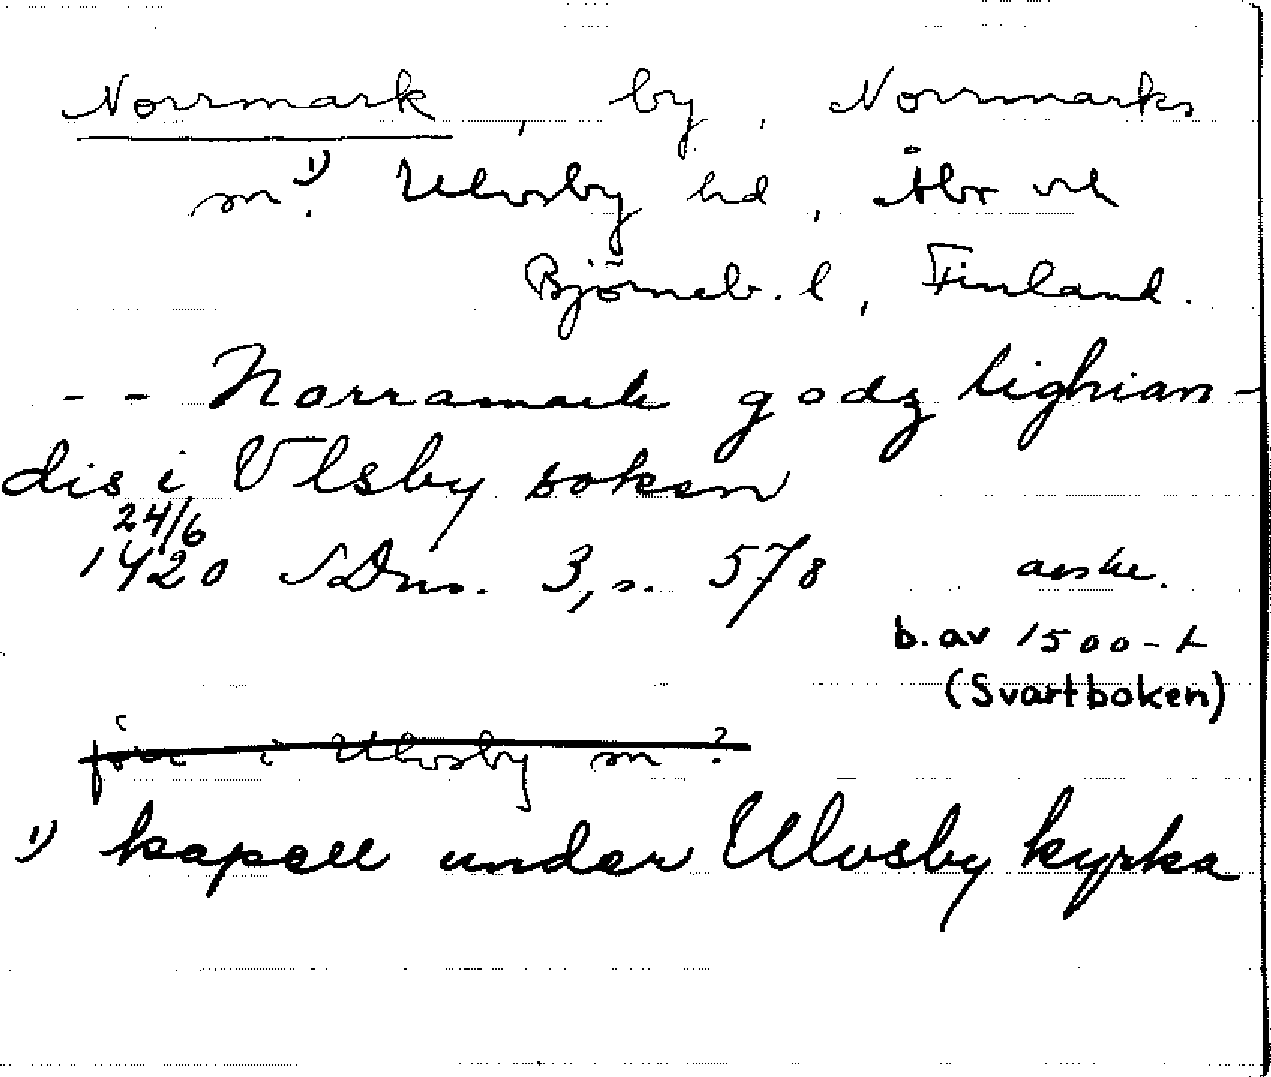 Norrmark, by, Norrmarks
sn.¹⁾ Ulvsby hd, Åbo och
Björneb. l, Finland.
-- Norramark godz lighian-
dis i Vlsby soken
24/6
1420 SDns. 3, s. 578 avskr.
b. av 1500-t
(Svartboken)
i Ulvsby sn?
¹⁾ kapell under Ulvsby kyrka